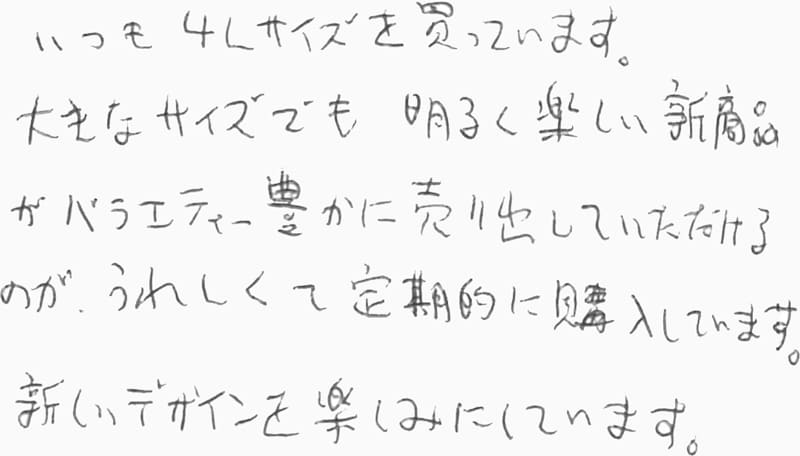 いつも 4Lサイズを買っています。
大きなサイズでも 明るく楽しい新商品
がバラエティー豊かに売り出していただける
のが、うれしくて定期的に購入しています。
新しいデザインを楽しみにしています。